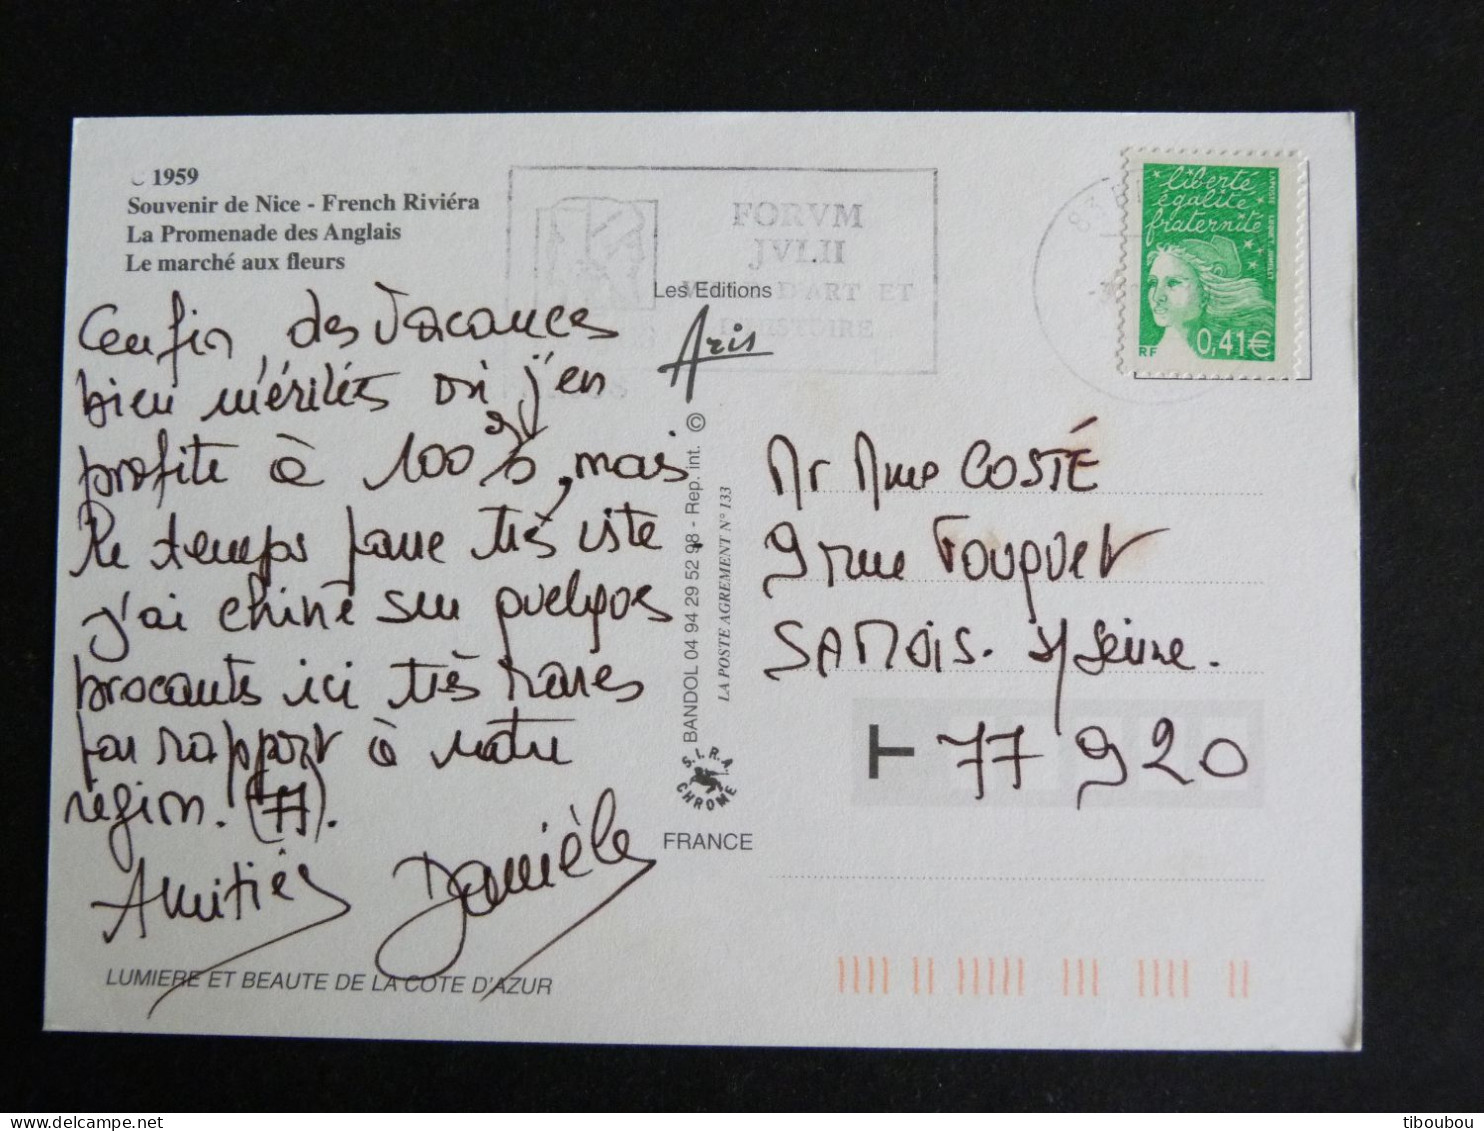 C 1959
Souvenir de Nice - French Riviéra
La Promenade des Anglais
Le marché aux fleurs
Enfin, des Vacances
bien méritées où j'en
profite à 100%, mais
le temps passe très vite
j'ai chiné sur quelques
brocants ici très rares
par rapport à notre
région. (77).
Amitiés Danièle
LUMIERE ET BEAUTE DE LA COTE D'AZUR
FORVM
JVLII
D'ART ET
D'HISTOIRE
Les Editions
Aris
BANDOL 04 94 29 52 98 - Rep. int. ©
LA POSTE AGREMENT N° 133
S.I.R.A.
CHROME
FRANCE
liberté
égalité
fraternité
RF 0,41€
Mr Mme COSTÉ
9 rue Fouquet
SAMOIS. s/Seine.
T 77 920
tiboubou